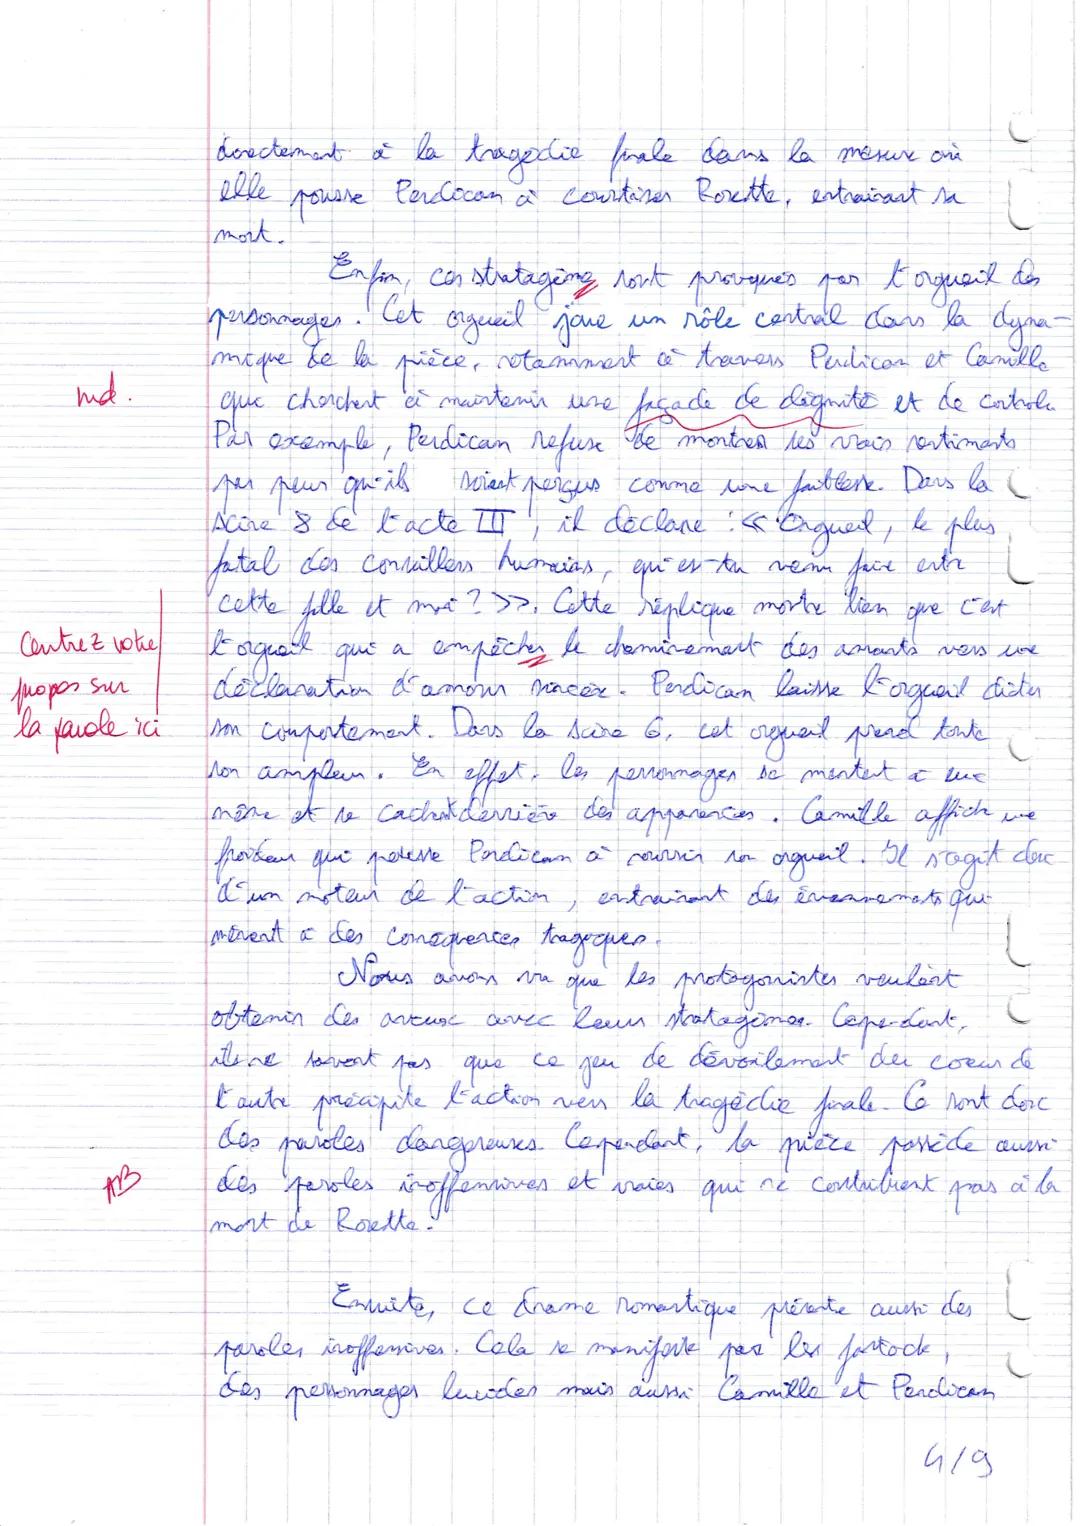 directement à la tragédie finale dans la mesure où
elle pousse Perdican à courtiser Rosette, entrainant sa
mort.
Enfin, ces stratagème sont provoqués par l'orgueil des
personnages. Cet orgueil joue un rôle central dans la dyna-
mique de la pièce, notamment à travers Perdican et Camille
md.
qui cherchent à maintenir une façade de dignité et de controle
Par exemple, Perdican refuse de montrer ses vrais sentiments
par peur qu'ils soient perçus comme une faiblesse. Dans la
scène 8 de l'acte III, il déclare : « Orgueil, le plus
fatal des conseillers humains, qu'es-tu venu faire entre
cette fille et moi ? ». Cette réplique montre bien que c'est
Centrez votre
propos sur
la parole ici
l'orgueil qui a empêcher le cheminement des amants vers une
déclaration d'amour sincère. Perdican laisse l'orgueil dicter
son comportement. Dans la scène 6, cet orgueil prend toute
son ampleur. En effet, les personnages se mentent à eux
même et se cachent derrière des apparences. Camille affiche une
froideur qui pousse Perdican à nourrir son orgueil. Il s'agit donc
d'un moteur de l'action, entrainant des évennements qui
mènent à des conséquences tragiques.
Nous avons vu que les protagonistes veulent
obtenir des aveux avec leurs stratagèmes. Cependant,
ils ne savent pas que ce jeu de dévoilement du coeur de
l'autre précipite l'action vers la tragédie finale. Ce sont donc
des paroles dangereuses. Cependant, la pièce possède aussi
TB
des paroles inoffensives et vraies qui ne contribuent pas à la
mort de Rosette.
Ensuite, ce drame romantique présente aussi des
paroles inoffensives. Cela se manifeste par les fantock,
des personnages lucides mais aussi Camille et Perdican
4/9